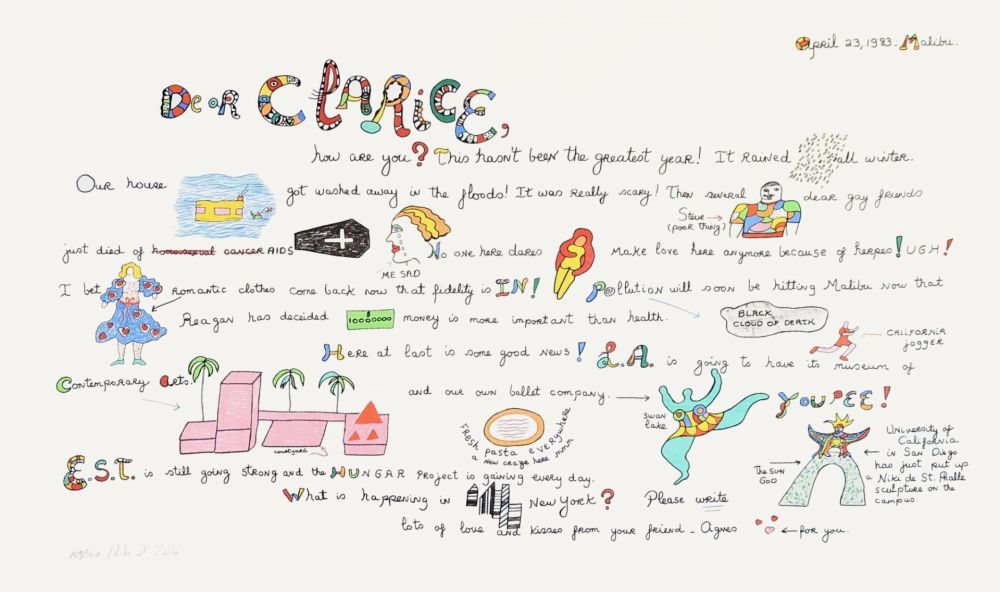 April 23, 1983 - Malibu.
Dear CLARICE,
how are you? This hasn't been the greatest year! It rained all winter.
Our house got washed away in the floods! It was really scary! Then several dear gay friends
Steve →
(poor thing)
just died of homosexual cancer AIDS No one here dares make love here anymore because of herpes! UGH!
ME SAD
I bet romantic clothes come back now that fidelity is IN! Pollution will soon be hitting Malibu now that
Reagan has decided 10000000 money is more important than health.
BLACK
CLOUD OF DEATH
CALIFORNIA
jogger
Here at last is some good news! L.A. is going to have its museum of
Contemporary Arts. and our own ballet company. → YOUPEE!
swan
lake
courtyard
FRESH pasta EVERYWHERE
a new craze here
University of
California
← in San Diego
has just put up
a Niki de St. Phalle
sculpture on the
campus.
The SUN
GOD
E.S.T. is still going strong and the HUNGAR Project is gaining every day.
What is happening in New York? Please write
lots of love and kisses from your friend - Agnes ← for you.